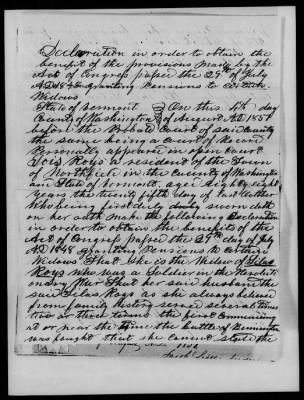 Declaration in order to obtain the
benefit of the provisions made by the
Act of Congress passed the 29th of July
AD 1848 granting Pensions to certain
Widows
State of Vermont
County of Washington On this 4th day
of August AD 1851
before the Probate Court of said County
the same being a Court of Record
Personally appeared in open Court
Lois Keys a resident of the Town
of Northfield in the County of Washington
and State of Vermont, aged eighty eight
years the twenty fifth day of last
who being first duly sworn doth
on her oath make the following Declaration
in order to obtain the benefits of the
Act of Congress passed the 29th day of July
AD 1848 granting Pensions to certain
Widows That she is the Widow of Silas
Keys who was a Soldier in the Revolution
ary War That her said husband the
said Silas Keys as she always believed
from family history served several times
two or three terms the first commencing
at or near the time the battle of Bennington
was fought that she cannot state the